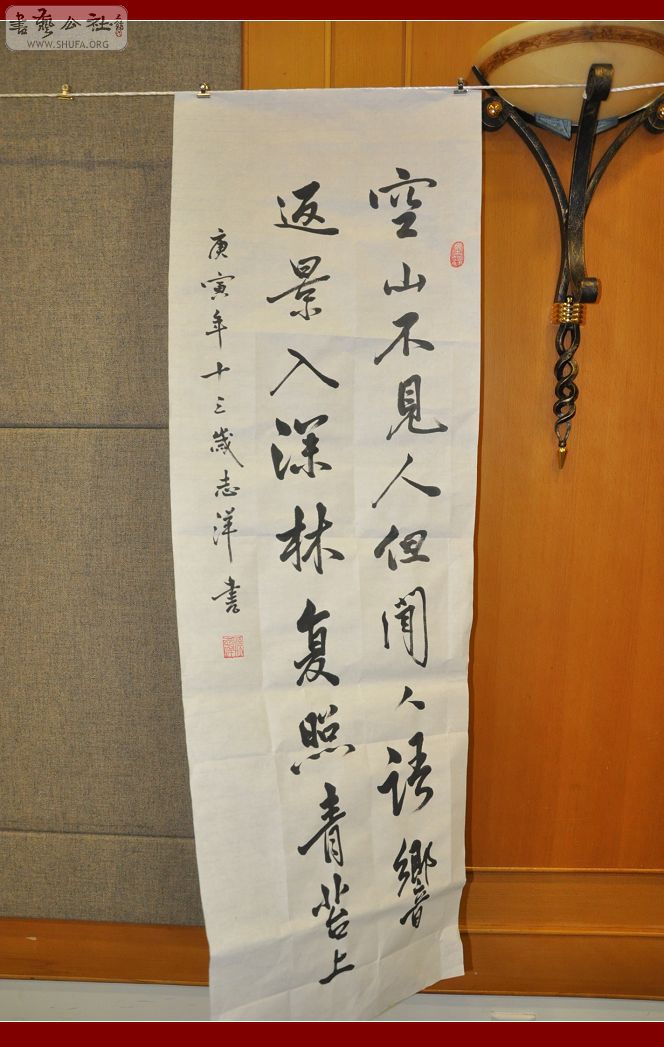 空山不見人但聞人語響
返景入深林复照青苔上
庚寅年十三歲志洋書
書藝公社
WWW.SHUFA.ORG